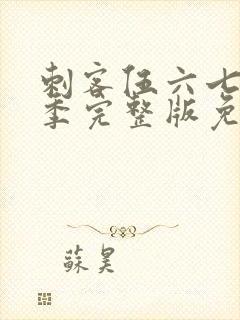 刺客伍六七
季完整版免
蘇昊